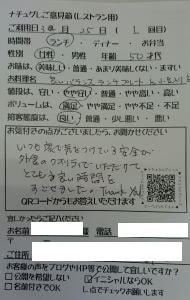 ナチュグしご意見箱(レストラン用)
ご利用日 月25日(1回目)
時間帯 ランチ・ディナー・お弁当
性別 女性 男性 年齢 50才代
お味は、美味しい・普通・あまり美味しくない・まずい
お料理名
値段は、安い・やや安い・普通・やや高い・高い
ボリュームは、満足・やや満足・やや不足・不足
接客態度は、良い・普通・少し悪い・悪い
お気付きの点がございましたら、お聞かせください
いつも家で気をつけている安全が
外食のクオリティでいただけて
とても幸せな時間を
すごせました。Thank you!
QRコードからもお答えいただけます
宜しかったらご記入ください
お名前 電話
ご住所
お客様の声をブログやHP等で公開して宜しいですか?
公開を希望しない イニシャルならOK
お名前付でOK レ点でチェックお願いします